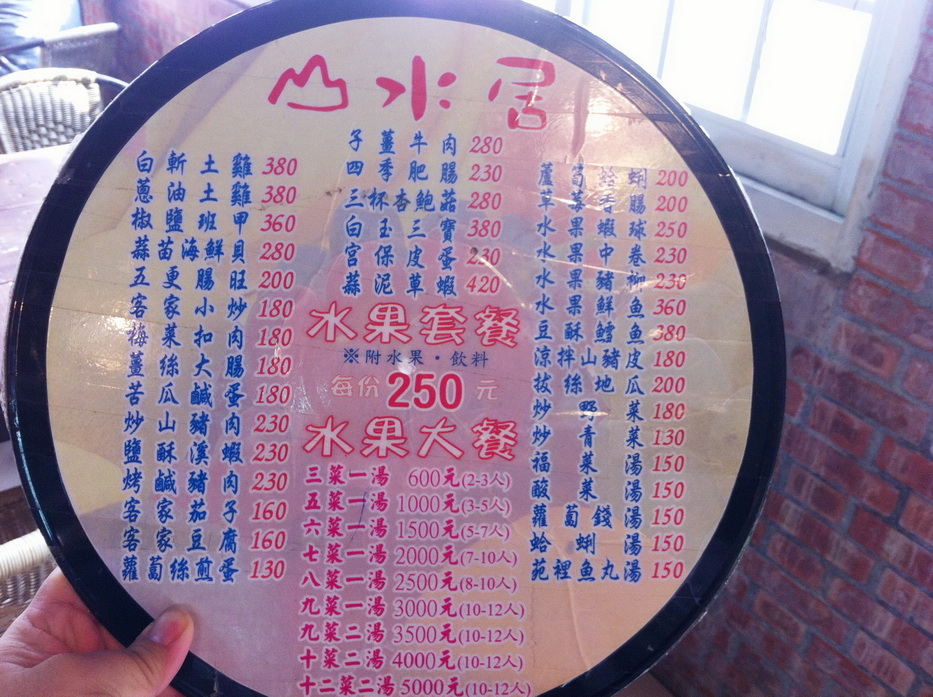 山水居
白斬土雞 380
蔥油土雞 380
椒鹽班甲 360
蒜苗海鮮貝 280
五更腸旺 200
客家小炒 180
梅菜扣肉 180
薑絲大腸 180
苦瓜鹹蛋 180
炒山豬肉 230
鹽酥溪蝦 230
烤鹹豬肉 230
客家茄子 160
客家豆腐 160
蘿蔔絲煎蛋 130
子薑牛肉 280
四季肥腸 230
三杯杏鮑菇 280
白玉三寶 380
宮保皮蛋 230
蒜泥草蝦 420
水果套餐
※附水果·飲料
每份 250 元
水果大餐
三菜一湯 600元(2-3人)
五菜一湯 1000元(3-5人)
六菜一湯 1500元(5-7人)
七菜一湯 2000元(7-10人)
八菜一湯 2500元(8-10人)
九菜一湯 3000元(10-12人)
九菜二湯 3500元(10-12人)
十菜二湯 4000元(10-12人)
十二菜二湯 5000元(10-12人)
蘆筍蛤蜊 200
草莓香腸 200
水果蝦球 250
水果中卷 230
水果豬柳 230
水果鮮魚 360
豆酥鱈魚 380
涼拌山豬皮 180
拔絲地瓜 200
炒野菜 180
炒青菜 130
福菜湯 150
酸菜湯 150
蘿蔔錢湯 150
蛤蜊湯 150
苑裡魚丸湯 150